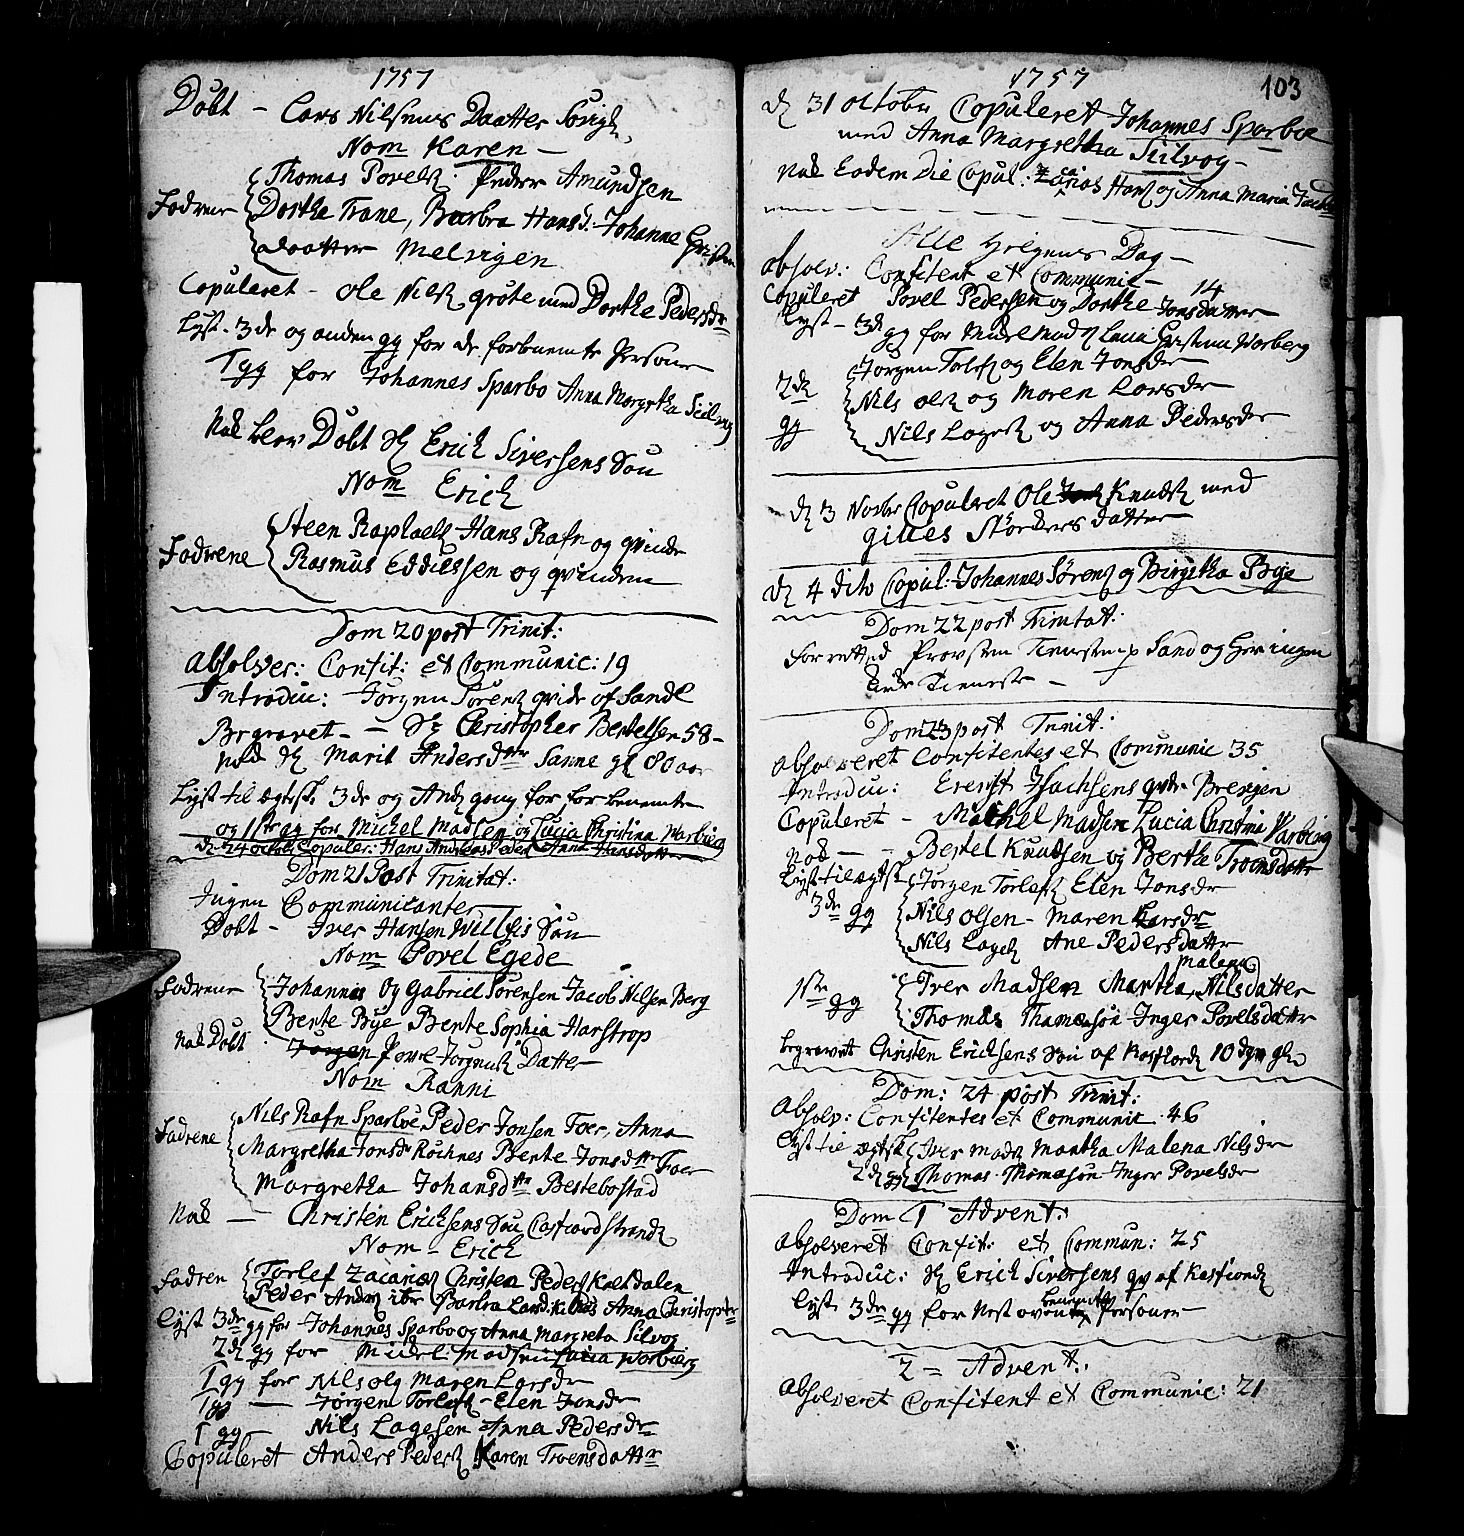 1757
Döbt - Lars Nilsens Daatter Sövigh
Nom Karen -
Thomas Povels: Peder Amundsen
Fadrene Dorthe Trane, Barbra Hansd: Johanne Christen
daatter Melvigen
Copuleret - Ole Nils grote med Dorthe Pedersdr
Lyst. 3de og anden gg for de forbnemte Personer
1 gg for Johannes Sparbo Anna Margretha Siilvog
Nok blev Döbt Erich Siversens Sön
Nom Erich
Steen Raphaels Hans Rafn og qvinde
Fadrene Rasmus Eddiessen og qvinden
Dom 20 post Trinit:
Absolver: Confit: et Communic: 19
Introduc: Jörgen Sörens qvide af Sandl
Begravet - - Christopher Bertelsen 58 -
nok Marit Andersdttr Sanne gl 80 aar
Lyst til ægtsk. 3de og And gang for for benemte
og 1ste gg for Michel Madsen og Lucia Christina Warbierg
d 24 octob Copuler: Hans Andreas Peders Anna Hansdatter
Dom 21 Post Trinitat:
Ingen Communicanter
Döbt - Iver Hansen Willdis Sön
Nom Povel Egede
Fadrene Johannes og Gabriel Sörensen Jacob Nilsen Berg
Bente Bye Bente Sophia Harstrop
Nok Döbt Jörgen Povel Jörgens Datter
Nom Ranni
Nils Rafn Sparboe, Peder Jonsen Foer, Anna
Fadrene Margretha Jonsdr Röthnes Bente Jonsdttr Foer
Margretha Johansdttr Bestebostad
Nok - Christen Erichsens Sön Castfiordstrand
Nom - Erich
Fadren Torlef Zacarias Christen Peders Kaldalen
Peder Anders Anna Christopher
Lyst 3de gg for Johannes Sparbo og Anna Margreta Silvog
2de gg for Michel Madsen Lucia Warbierg
1 gg for Nils Ols Maren Larsdr
1 gg - Jörgen Torlefs - Elen Jonsdr
1 gg - Nils Lagesen Anna Pedersdr
Copuleret Anders Peders Karen Troensdattr
1757 103
d 31 octobr Copuleret Johannes Sparboe
med Anna Margretha Siilvog -
Nok Eodem Die Copul: Zacarias Hans og Anna Maria
Alle Helgens Dag -
Absolv: Confitent et Communic - 14
Copuleret Povel Pedersen og Dorthe Jonsdatter
Lyst - 3de gg for Michel Mads Lucia Christina Warberg
Jörgen Torlefs og Elen Jonsdr
2de Nils Ols og Maren Larsdr
gg Nils Lages og Anna Pedersdr
d 3 Novbr Copuleret Ole Knuds med
giltes Störchers datter
d 4 dito Copul: Johannes Sörens og Birgitha Bye
Dom 22 post Trinitat:
forretted Provsten Tienesten p Sand og her ingen
Tieneste -
Dom 23 post Trinit:
Absolveret Confitentes et Communic 35
Introduc: Erenst Isachsens qvde Brevigen
Copuleret - Michel Madsen Lucia Christina Warbierg
nok - - Bertel Knudsen og Berthe Troensdattr
Lyst til ægtsk Jörgen Torlefs Elen Jonsdr
3de gg Nils Olsen - Maren Larsdr
Nils Lages Ane Pedersdattr
malena
1ste gg Iver Madsen Martha Nilsdatter
Thomas Thomæsön Inger Povelsdattr
begravet Christen Erichsens Sön af Kastfiord 10 dgr gl
Dom: 24 post Trinit:
Absolv: Confitentes et Communic 46
Lyst til ægtsk Iver Mads Martha Malena Nilsdr
2de gg Thomas Thomæsön Inger Povelsdr
Dom 1 Advent:
Absolveret Confit: et Commun: 25
Introduc: Erich Siversens qv af Kastfiord
Lyst 3de gg for Nest oven benemte Personer -
2 = Advent:
Absolveret Confitent et Communic: 21